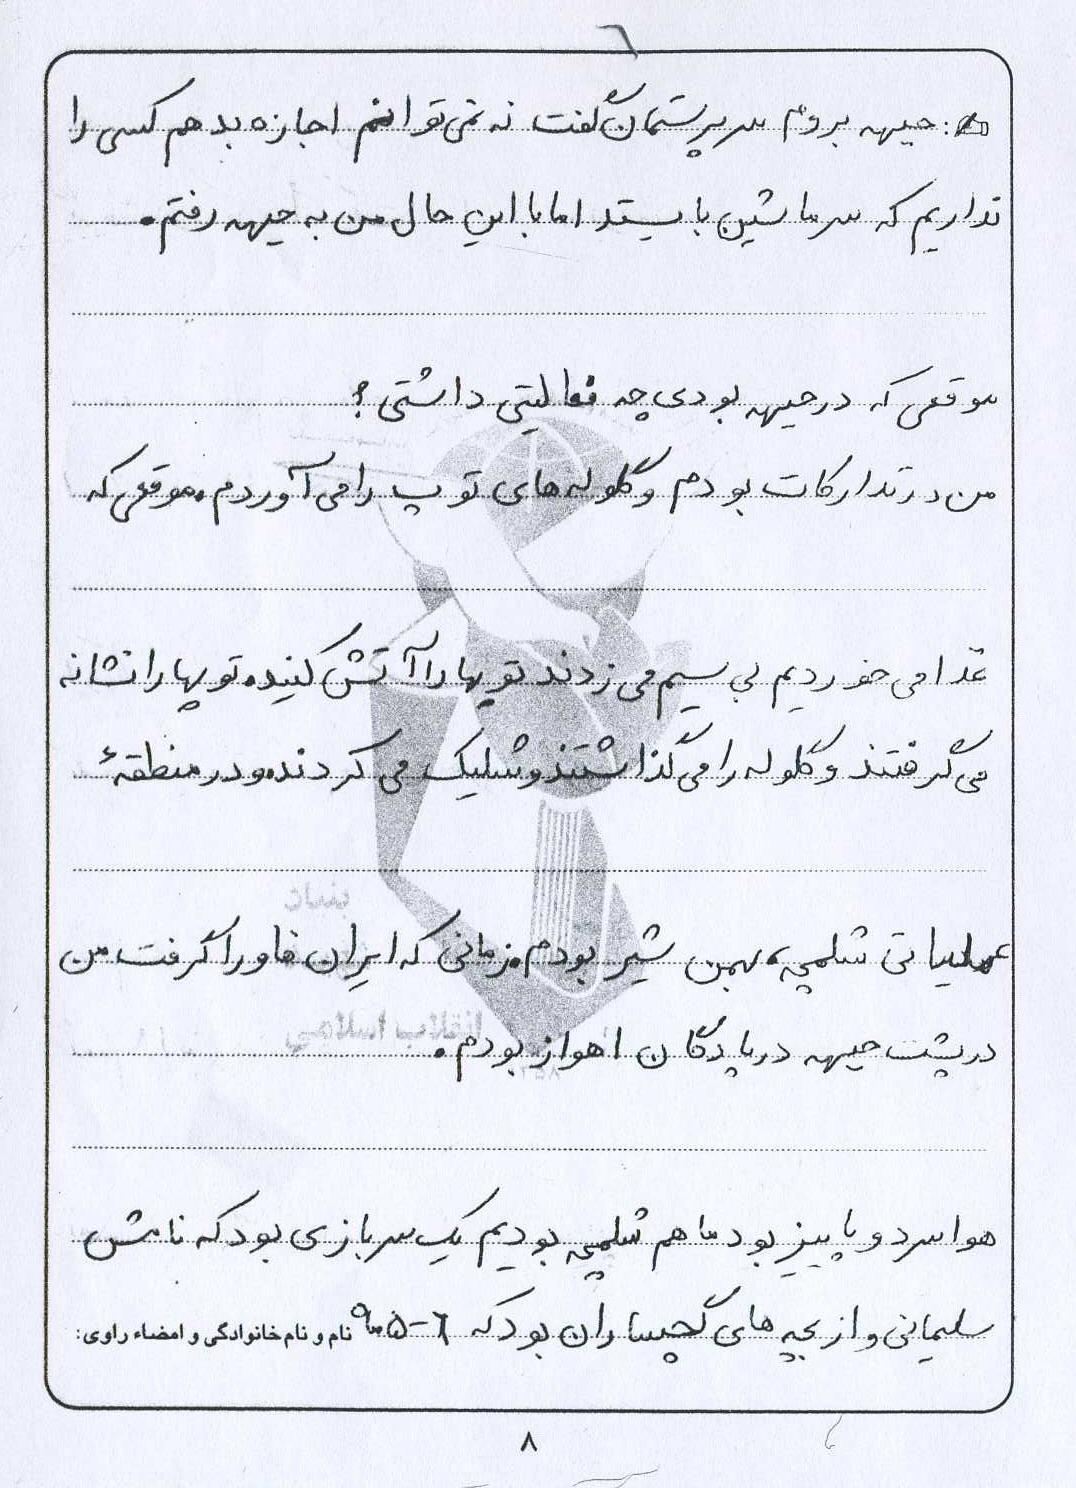 ۶
به: جبهه بروم سرپرستمان گفت نه نمی توانم اجازه بدهم کسی را
نداریم که سر ماشین بایستد اما با این حال من به جبهه رفتم.
موقعی که در جبهه بودی چه فعالیتی داشتی؟
من در تدارکات بودم و گلوله های توپ را می آوردم. موقعی که
غذا می خوردیم بی سیم می زدند توپها را آتش کنید. توپها را نشانه
می گرفتند و گلوله را می گذاشتند و شلیک می کردند. و در منطقهٔ
عملیاتی شلمچه، بهمن شیر بودم. زمانی که ایران فاو را گرفت من
در پشت جبهه در پادگان اهواز بودم.
هوا سرد و پاییز بود ما هم شلمچه بودیم یک سربازی بود که نامش
سلیمانی و از بچه های گچساران بود که ۶-۵ ماه
نام و نام خانوادگی و امضاء راوی:
۸